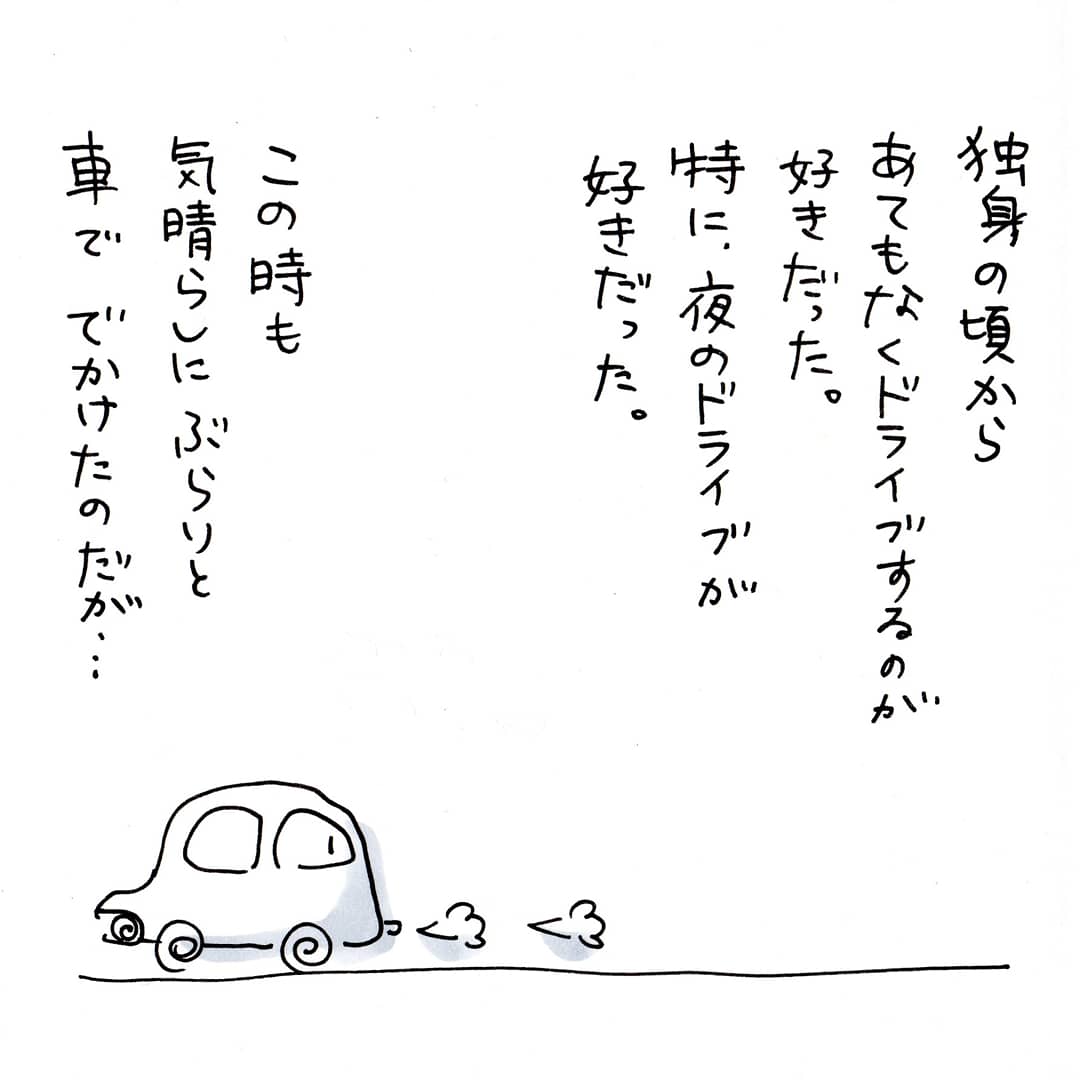 独身の頃から
あてもなくドライブするのが
好きだった。
特に、夜のドライブが
好きだった。
この時も
気晴らしに ぶらりと
車で でかけたのだが…